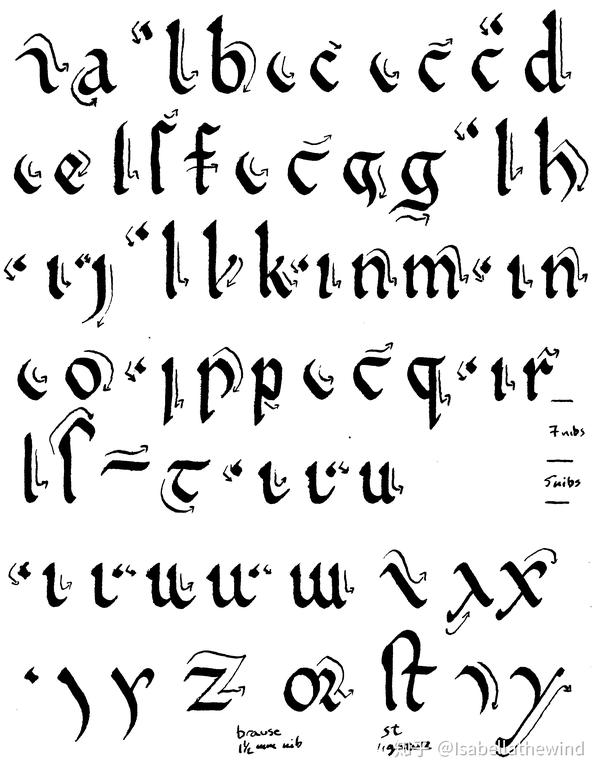 a l b c c c c c d
c e l ſ f c c q g l h
ı j l l k ı n m ı n
c o ı p p c q ı r
7 nibs
l ſ t ı u
5 nibs
ı u u w x
y z or st y
brause
1½ mm nib
st
知乎 @Isabellathewind